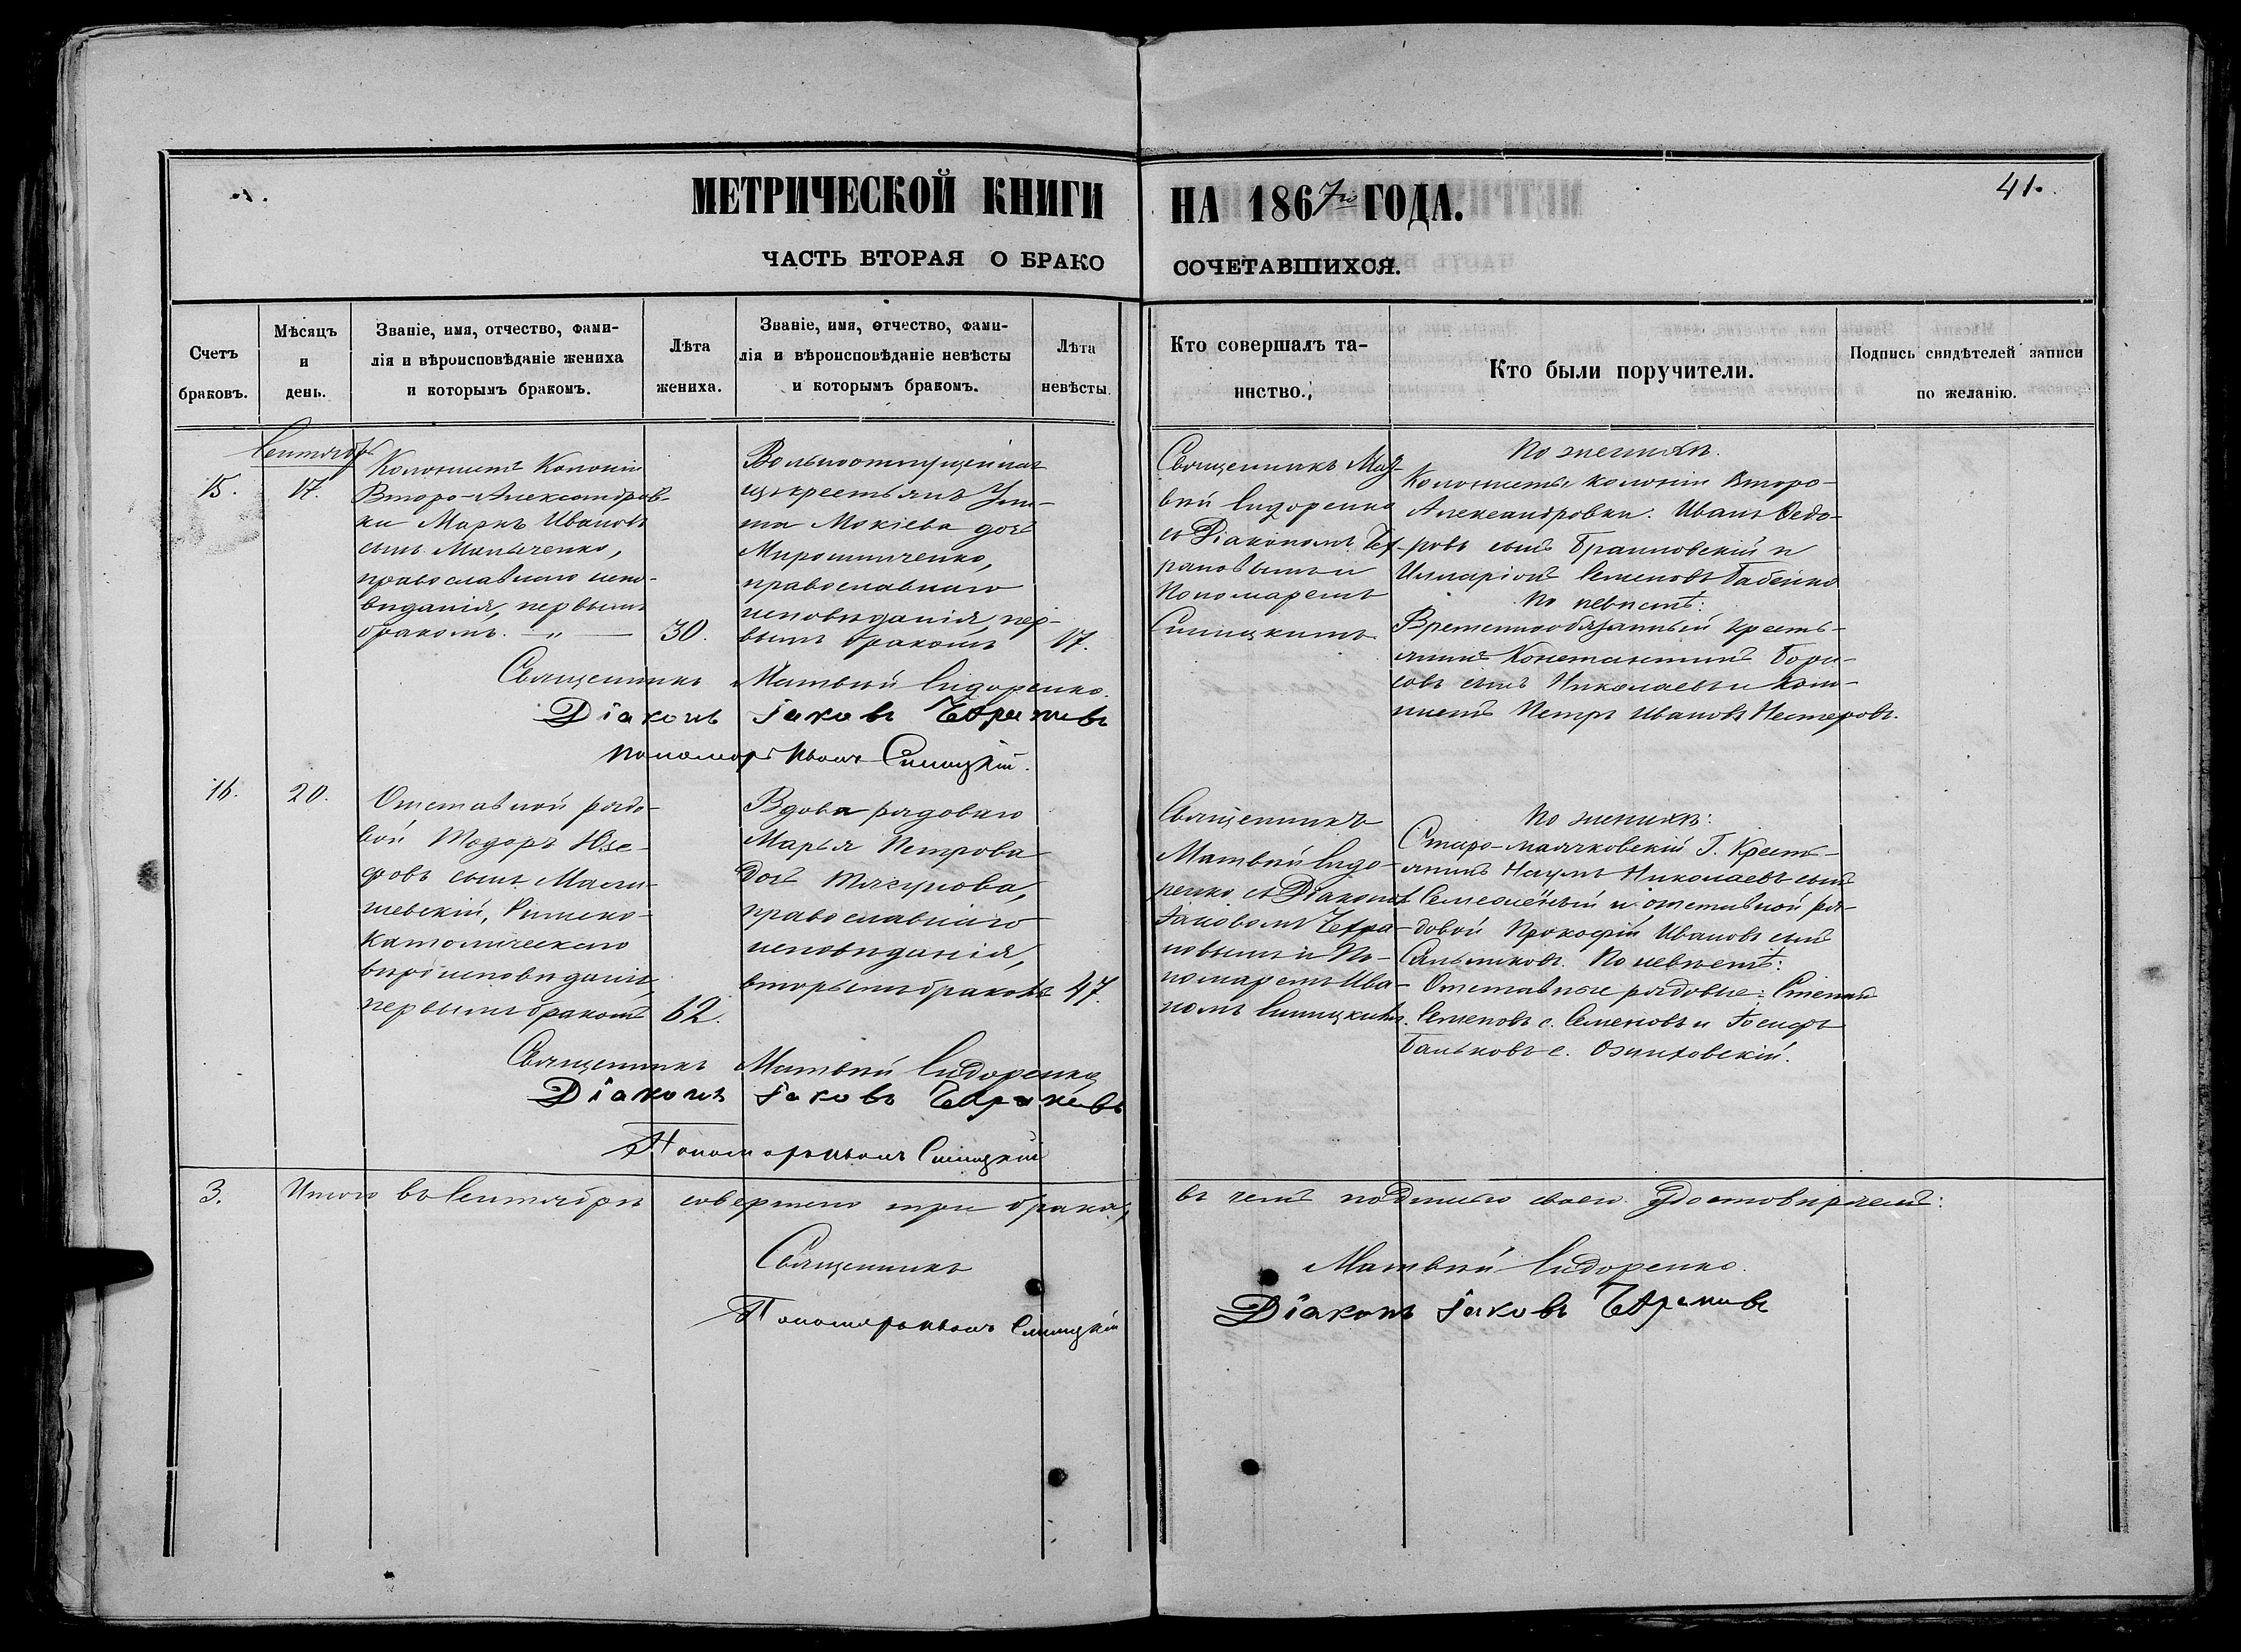 41.
МЕТРИЧЕСКОЙ КНИГИ НА 1867го ГОДА.
ЧАСТЬ ВТОРАЯ О БРАКО СОЧЕТАВШИХСЯ.
Счетъ
браковъ.
Мѣсяцъ
и
день.
Званіе, имя, отчество, фами-
лія и вѣроисповѣданіе жениха
и которымъ бракомъ.
Лѣта
жениха.
Званіе, имя, отчество, фами-
лія и вѣроисповѣданіе невѣсты
и которымъ бракомъ.
Лѣта
невѣсты.
Кто совершалъ та-
инство.
Кто были поручители.
Подпись свидѣтелей записи
по желанію.
Сентябрь
15.
17.
Колонистъ Колоніи
Второ-Александров-
ки Маркъ Ивановъ
сынъ
православнаго испо-
вѣданія, первымъ
бракомъ. — „ —
30.
Вольноотпущенная
изъ крестьянъ
Мокіева дочь
Мирошниченко,
православнаго
исповѣданія, пер-
вымъ бракомъ
17.
Священникъ Мат-
вѣй Сидоренко
съ Діакономъ
и
Пономаремъ
Синицкимъ
По женихѣ.
Колонисты колоніи Второ-
Александровки: Иванъ Ѳедо-
ровъ сынъ Браиловскій и
Илларіонъ Семеновъ Бабенко
По невѣстѣ:
Временнообязанный кресть-
янинъ Константинъ Бори-
совъ сынъ Николаевъ и коло-
нистъ Петръ Ивановъ Нестеровъ.
Священникъ Матвѣй Сидоренко.
Діаконъ Іаковъ
Пономарь Иванъ Синицкій.
16.
20.
Отставной рядо-
вой Тодоръ Юзе-
фовъ сынъ Мали-
шевскій, Римско-
Католическаго
вѣроисповѣданія,
первымъ бракомъ
62.
Вдова рядоваго
Марья Петрова
дочь
православнаго
исповѣданія,
вторымъ бракомъ
47.
Священникъ
Матвѣй Сидо-
ренко съ Діакономъ
Іаковомъ
и По-
номаремъ Ива-
номъ Синицкимъ.
По женихѣ:
Старо-маячковскій Г. Кресть-
янинъ Наумъ Николаевъ сынъ
и отставной ря-
довой Прокофій Ивановъ сынъ
Сальниковъ. По невѣстѣ:
Отставные рядовые: Степанъ
Семеновъ с. Семеновъ и Іосифъ
Баньковъ с.
Священникъ Матвѣй Сидоренко
Діаконъ Іаковъ
Пономарь Иванъ Синицкій
3.
Итого въ Сентябрѣ совершено три брака, въ чемъ подписью своею удостовѣряемъ:
Священникъ Матвѣй Сидоренко.
Пономарь Иванъ Синицкій Діаконъ Іаковъ